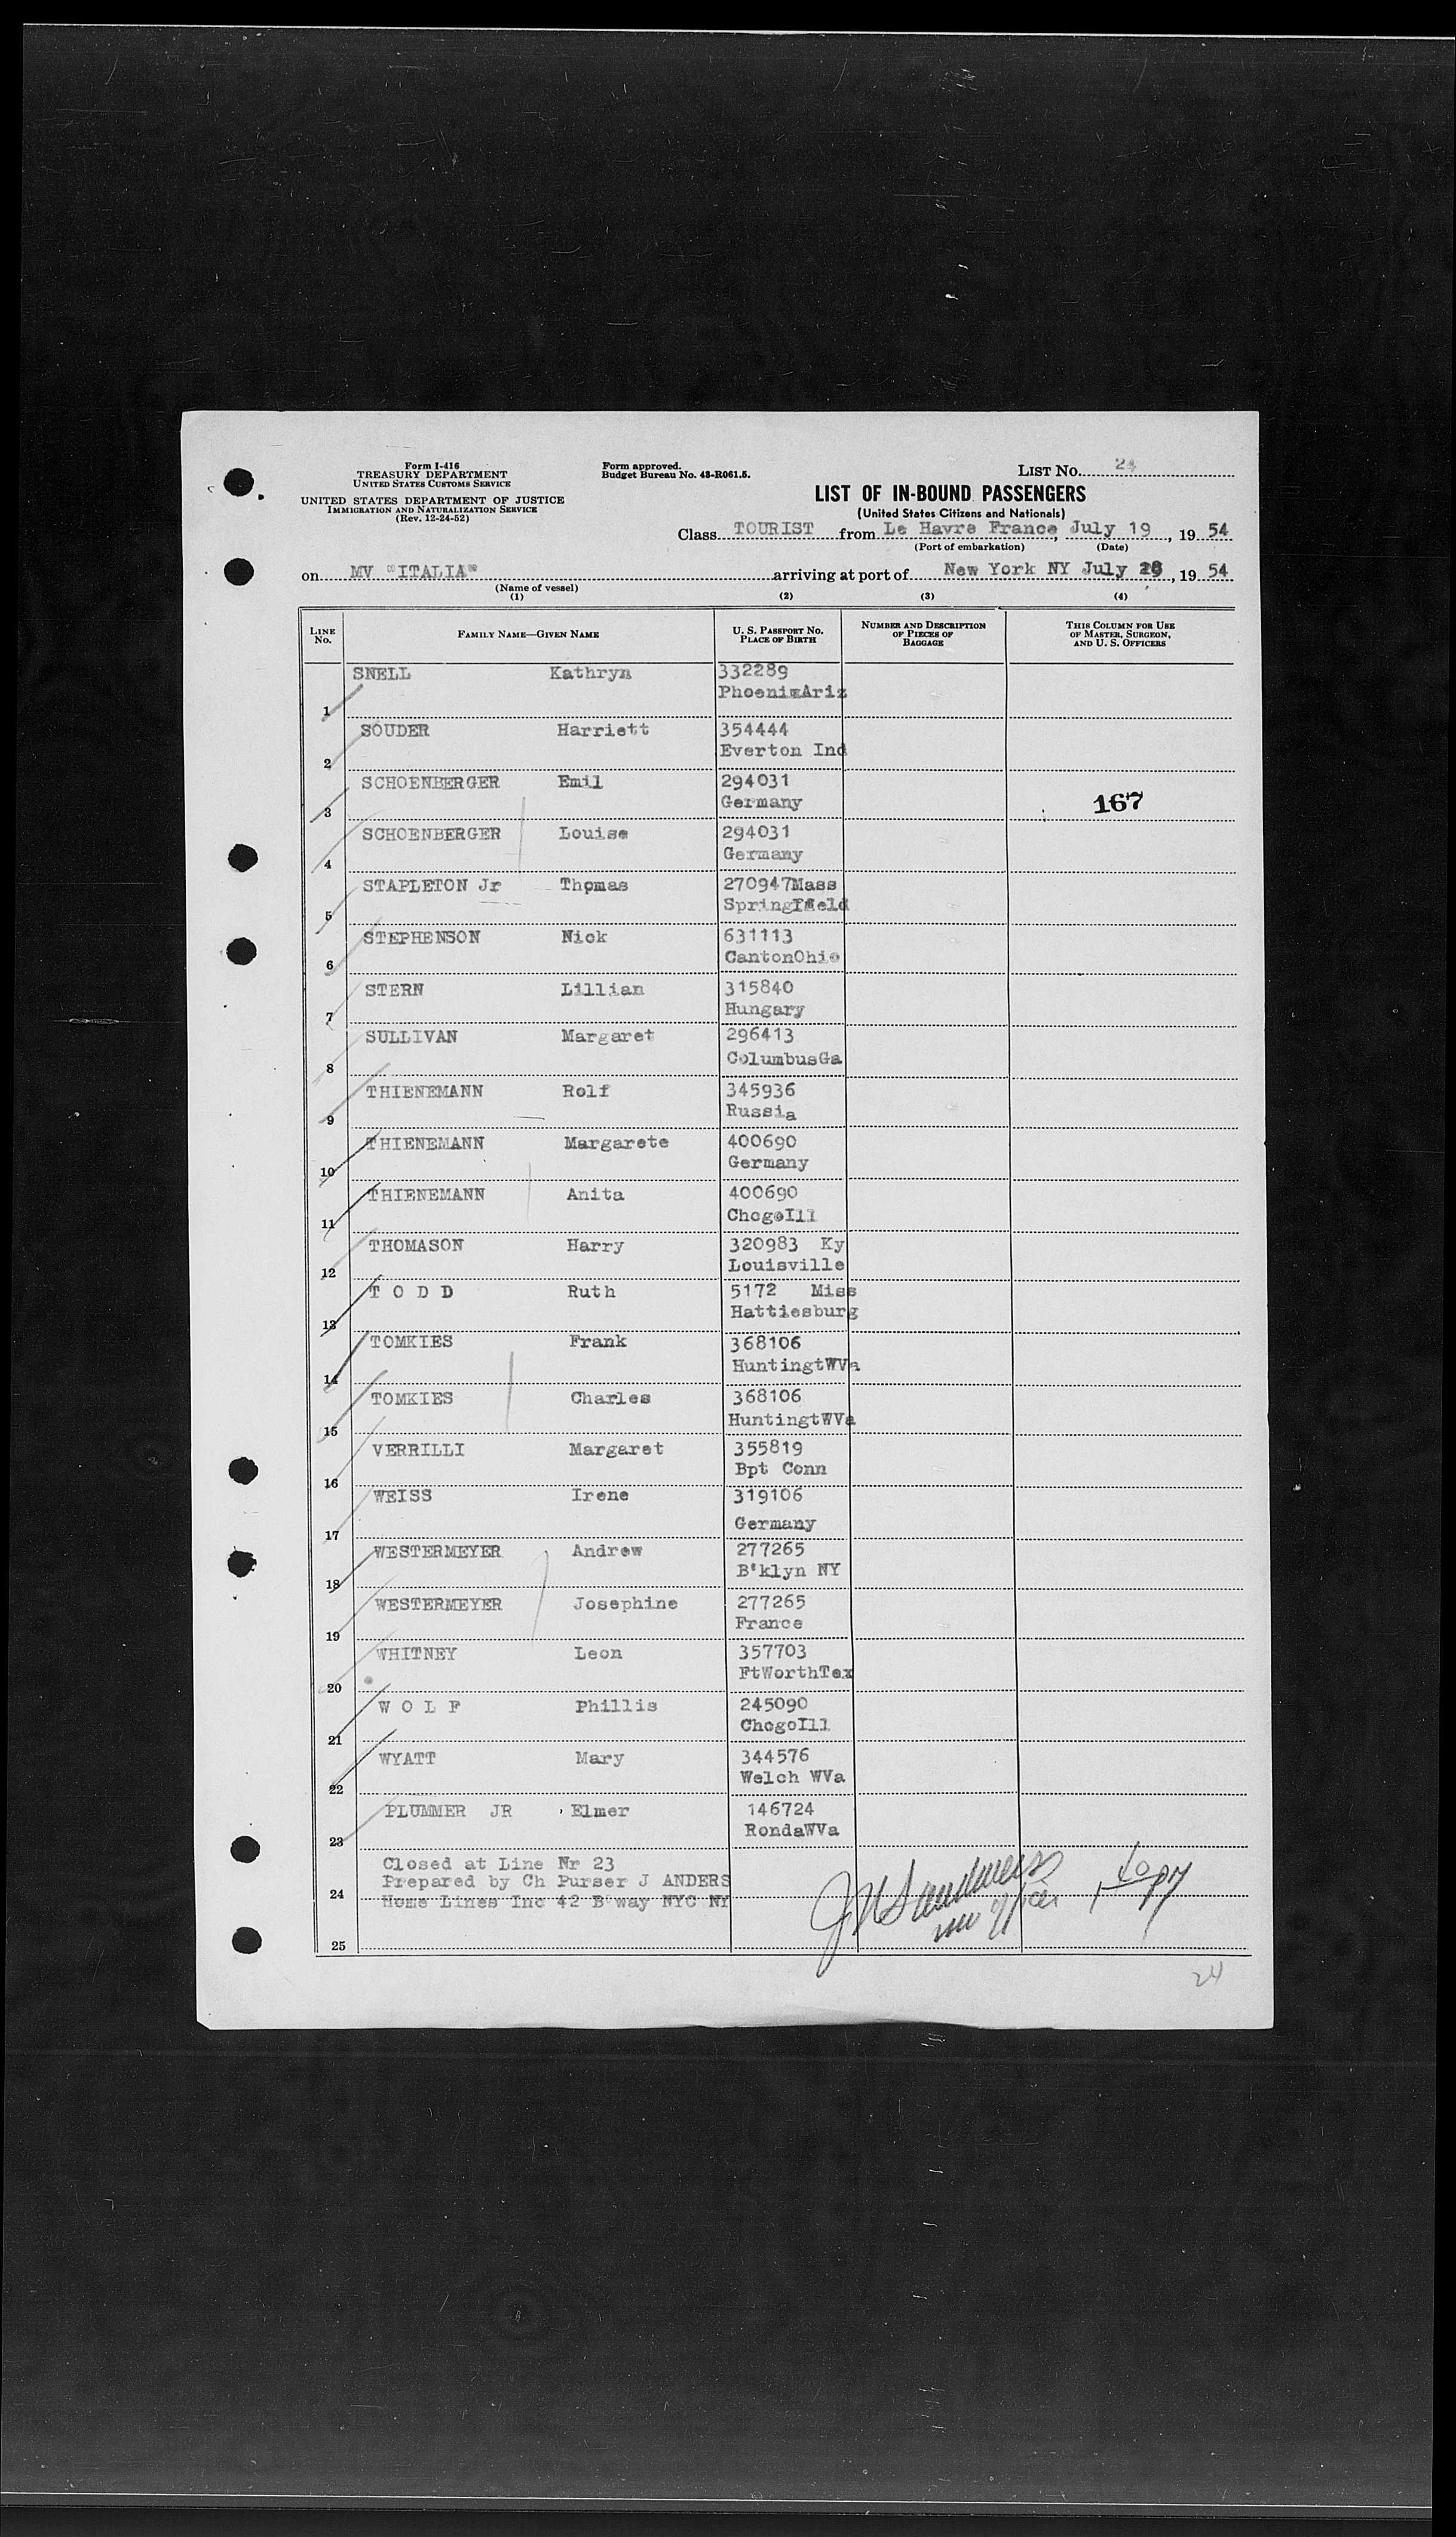 Form I-416
TREASURY DEPARTMENT
UNITED STATES CUSTOMS SERVICE
UNITED STATES DEPARTMENT OF JUSTICE
IMMIGRATION AND NATURALIZATION SERVICE
(Rev. 12-24-52)
Form approved.
Budget Bureau No. 43-R061.5.
LIST NO. 24
LIST OF IN-BOUND PASSENGERS
(United States Citizens and Nationals)
Class TOURIST from Le Havre France, July 19, 19 54
(Port of embarkation) (Date)
on MV "ITALIA" arriving at port of New York NY July 28, 19 54
(Name of vessel)
(1) (2) (3) (4)
LINE NO. FAMILY NAME—GIVEN NAME U. S. PASSPORT NO. PLACE OF BIRTH NUMBER AND DESCRIPTION OF PIECES OF BAGGAGE THIS COLUMN FOR USE OF MASTER, SURGEON, AND U. S. OFFICERS
SNELL Kathryn 332289
1 PhoenixAriz
SOUDER Harriett 354444
2 Everton Ind
SCHOENBERGER Emil 294031
3 Germany 167
SCHOENBERGER Louise 294031
4 Germany
STAPLETON Jr Thomas 270947Mass
5 Springfield
STEPHENSON Nick 631113
6 CantonOhio
STERN Lillian 315840
7 Hungary
SULLIVAN Margaret 296413
8 ColumbusGa
THIENEMANN Rolf 345936
9 Russia
THIENEMANN Margarete 400690
10 Germany
THIENEMANN Anita 400690
11 ChcgoIll
THOMASON Harry 320983 Ky
12 Louisville
T O D D Ruth 5172 Miss
13 Hattiesburg
TOMKIES Frank 368106
14 HuntingtWVa
TOMKIES Charles 368106
15 HuntingtWVa
VERRILLI Margaret 355819
16 Bpt Conn
WEISS Irene 319106
17 Germany
WESTERMEYER Andrew 277265
18 B'klyn NY
WESTERMEYER Josephine 277265
19 France
WHITNEY Leon 357703
20 FtWorthTex
W O L F Phillis 245090
21 ChcgoIll
WYATT Mary 344576
22 Welch WVa
PLUMMER JR Elmer 146724
23 RondaWVa
Closed at Line Nr 23
Prepared by Ch Purser J ANDERS
24 Home Lines Inc 42 B'way NYC NY
25
24